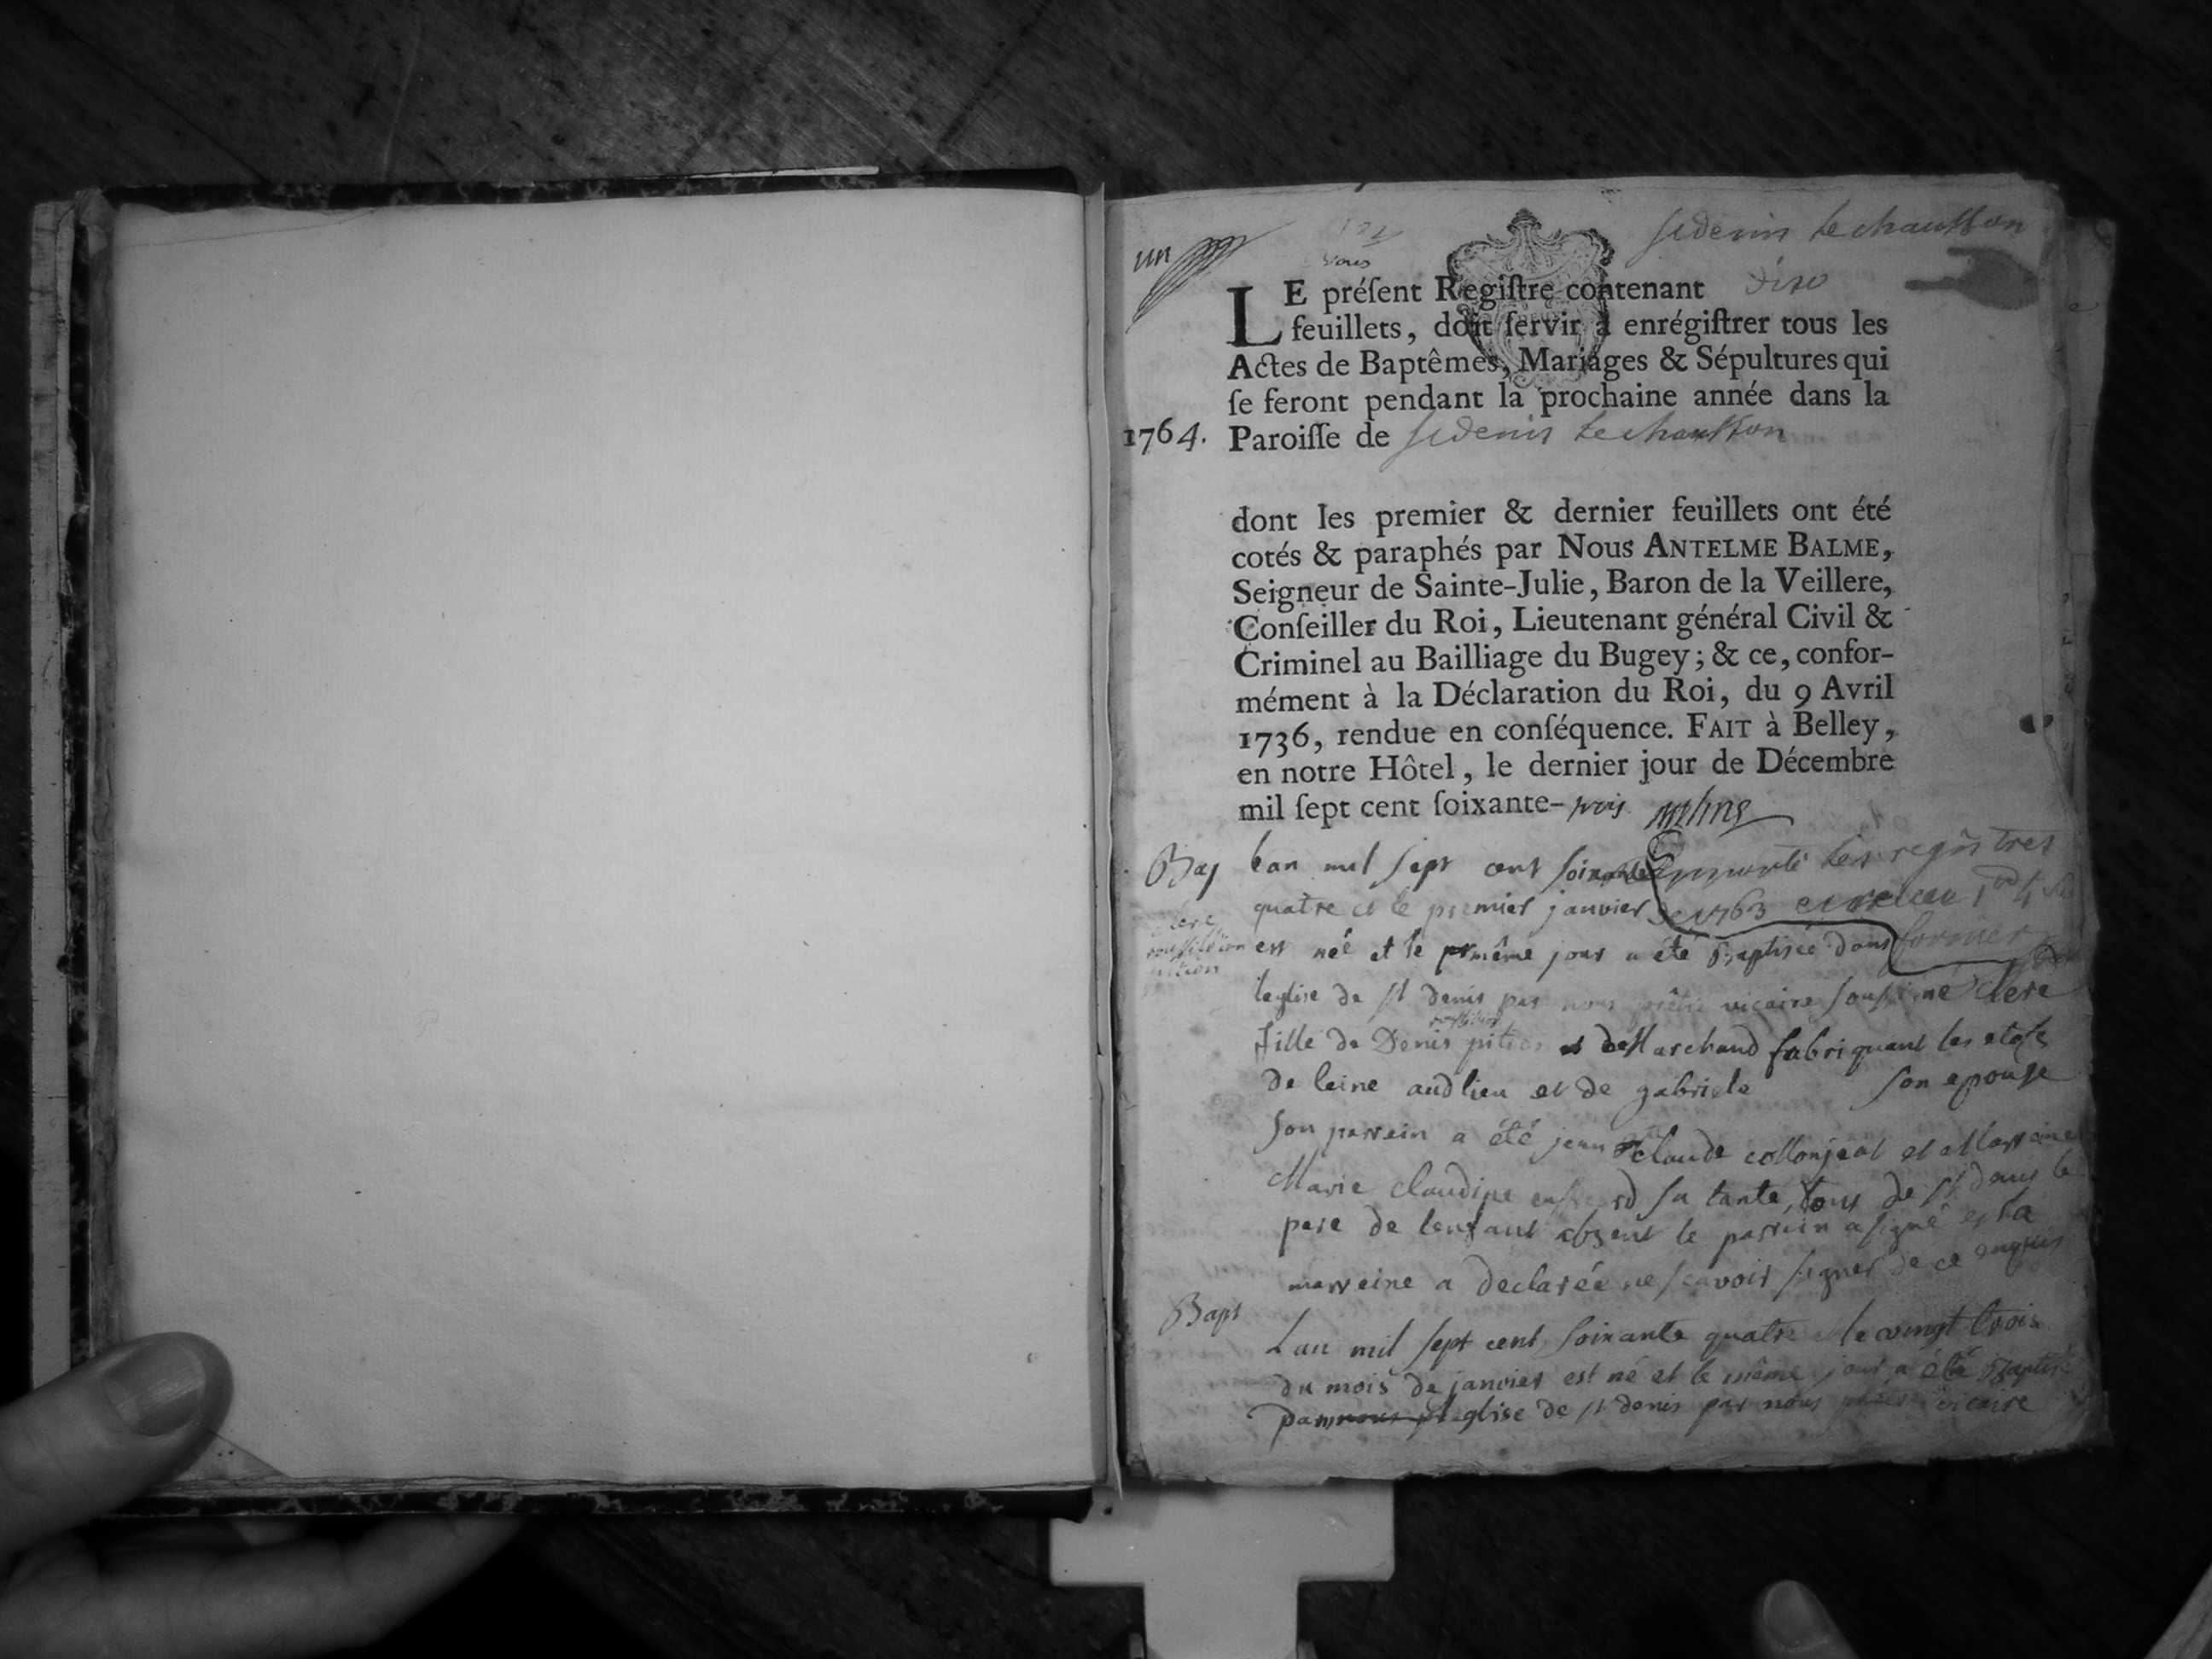 un
st denis le chausson
LE préſent Regiſtre contenant dix
feuillets, doit ſervir à enrégiſtrer tous les
Actes de Baptêmes, Mariages & Sépultures qui
ſe feront pendant la prochaine année dans la
1764. Paroiſſe de st denis le chausson
dont les premier & dernier feuillets ont été
cotés & paraphés par Nous ANTELME BALME,
Seigneur de Sainte-Julie, Baron de la Veillere,
Conſeiller du Roi, Lieutenant général Civil &
Criminel au Bailliage du Bugey; & ce, confor-
mément à la Déclaration du Roi, du 9 Avril
1736, rendue en conſéquence. FAIT à Belley,
en notre Hôtel, le dernier jour de Décembre
mil ſept cent ſoixante-trois
Bap lan mil sept cent soixante
les registres
quatre et le premier janvier
de 1763
est née et le même jour a été Baptisée dans
leglise de st denis par nous vicaire
fille de Denis et de Marchand fabriquant les etofe
de leine audlieu et de gabriele son epouse
son parrein a été jean claude collonjeat et
Marie claudine sa tante, tous de st le
pere de lenfant absent le parrein a signé et la
marreine a declarée ne scavoir signer de ce
Bapt
Lan mil sept cent soixante quatre le vingt trois
du mois de janvier est né et le même jour a été
eglise de st denis par nous vicaire